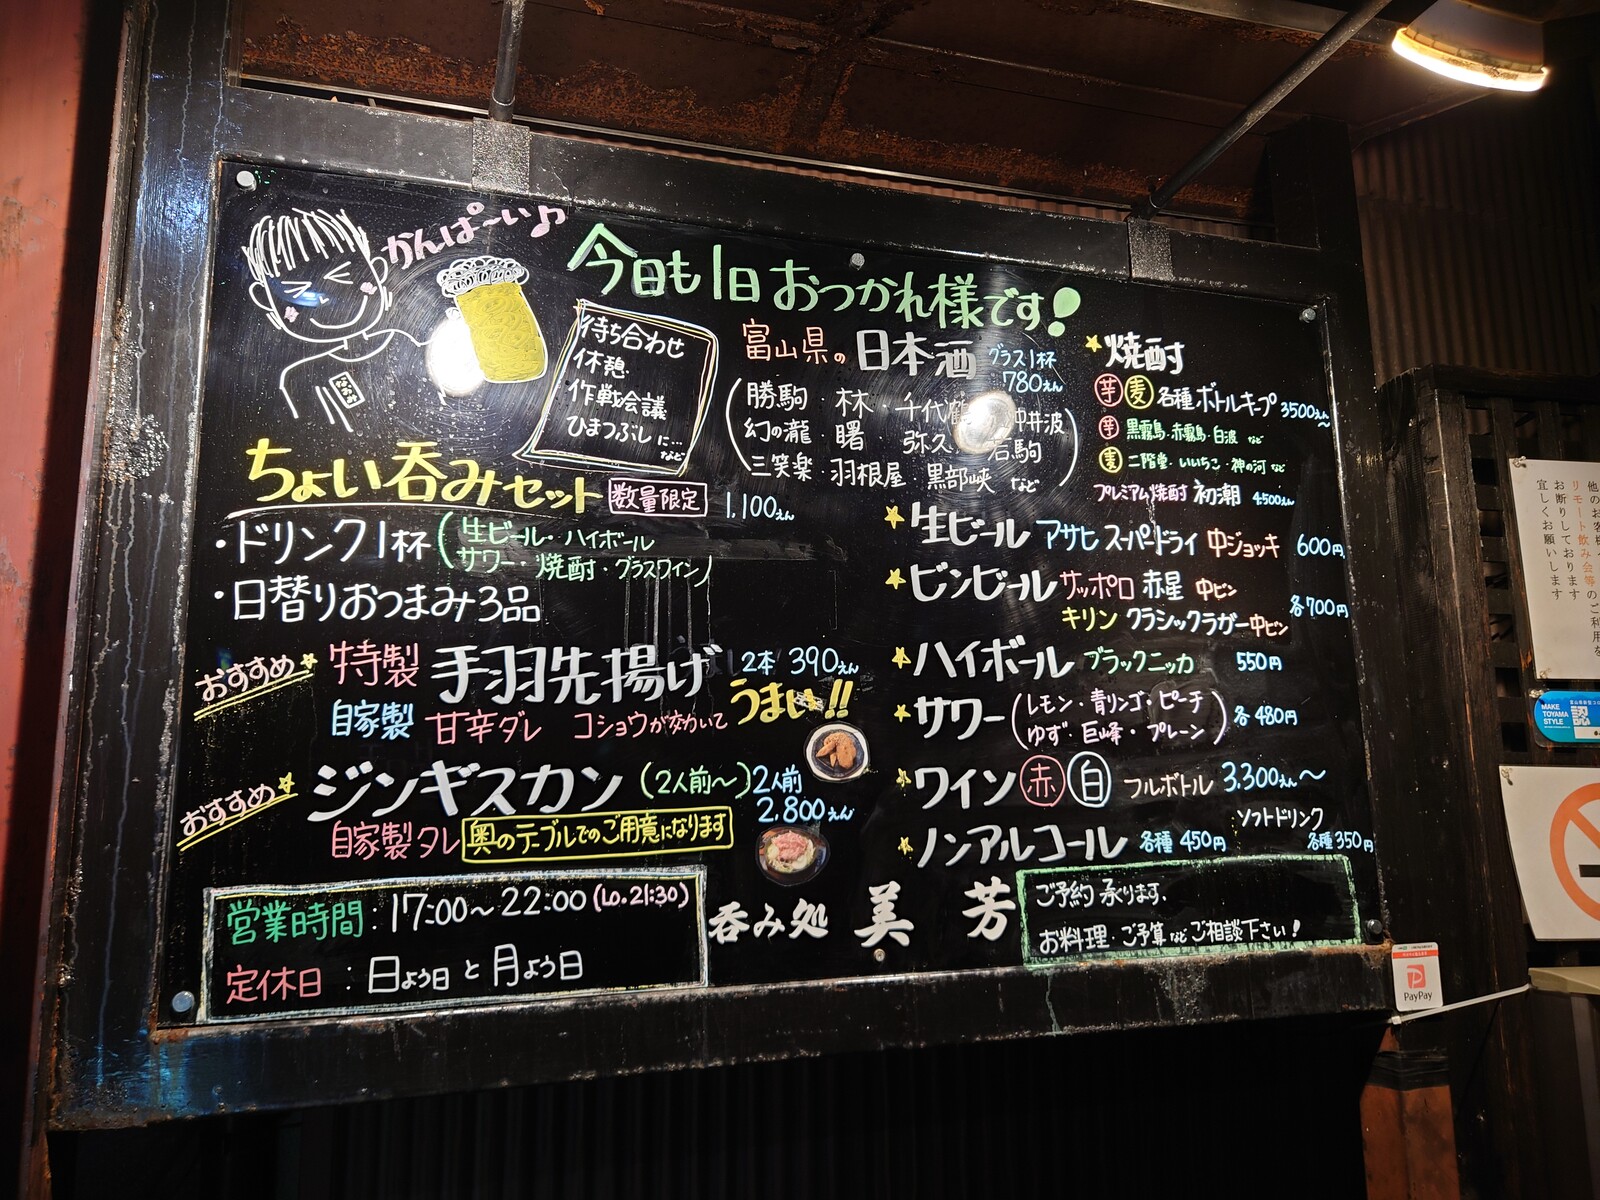 かんぱ〜い♪
なおみ
今日も1日おつかれ様です!
待ち合わせ
休憩
作戦会議
ひまつぶしに…
など
ちょい呑みセット 数量限定 1,100えん
・ドリンク1杯(生ビール・ハイボール
サワー・焼酎・グラスワイン)
・日替りおつまみ3品
おすすめ 特製 手羽先揚げ 2本 390えん
自家製 甘辛ダレ コショウが効いて うまい!!
おすすめ ジンギスカン (2人前〜) 2人前
2,800えん
自家製タレ 奥のテーブルでのご用意になります
営業時間:17:00〜22:00(L.O.21:30)
定休日:日よう日と月よう日
富山県の日本酒 グラス1杯
780えん
勝駒・林・千代鶴
幻の瀧・曙・弥久
三笑楽・羽根屋・黒部峡 など
焼酎
芋 麦 各種ボトルキープ 3500えん〜
芋 黒霧島・赤霧島・白波 など
麦 二階堂・いいちこ・神の河 など
プレミアム焼酎 初潮 4500えん
生ビール アサヒ スーパードライ 中ジョッキ 600円
ビンビール サッポロ 赤星 中ビン
キリン クラシックラガー中ビン 各700円
ハイボール ブラックニッカ 550円
サワー(レモン・青リンゴ・ピーチ
ゆず・巨峰・プレーン) 各480円
ワイン 赤 白 フルボトル 3,300えん〜
ノンアルコール 各種450円 ソフトドリンク 各種350円
呑み処 美芳
ご予約承ります.
お料理・ご予算などご相談下さい!
リモート飲み会等のご利用を
お断りしております
宜しくお願いします
MAKE
TOYAMA
STYLE
PayPay